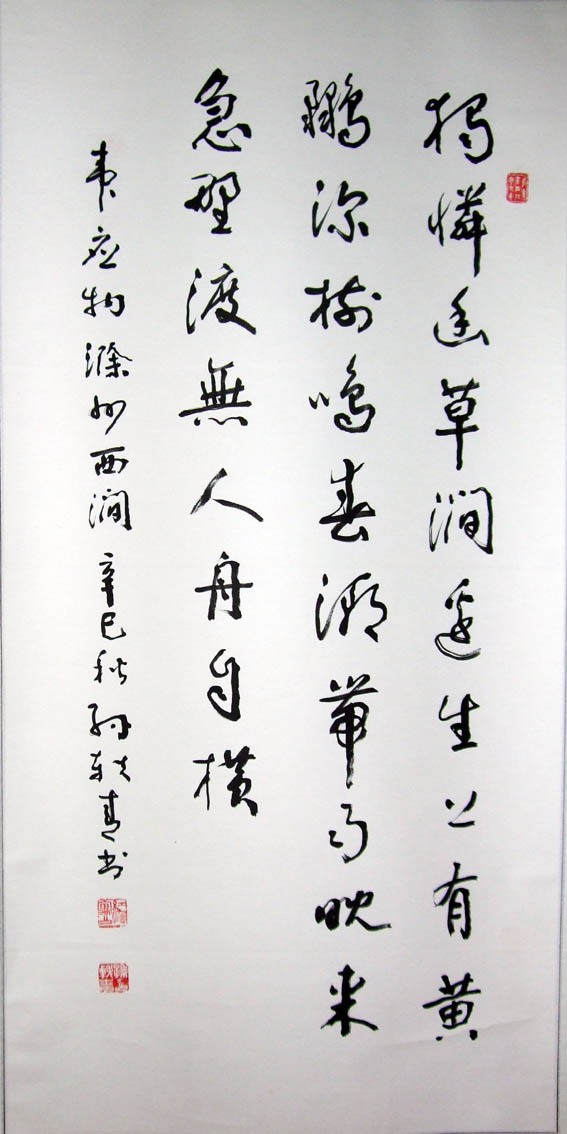 獨憐幽草澗邊生上有黄
鸝深樹鳴春潮帶雨晚来
急野渡無人舟自横
韦应物滁州西澗 辛巳秋 孙轶青书